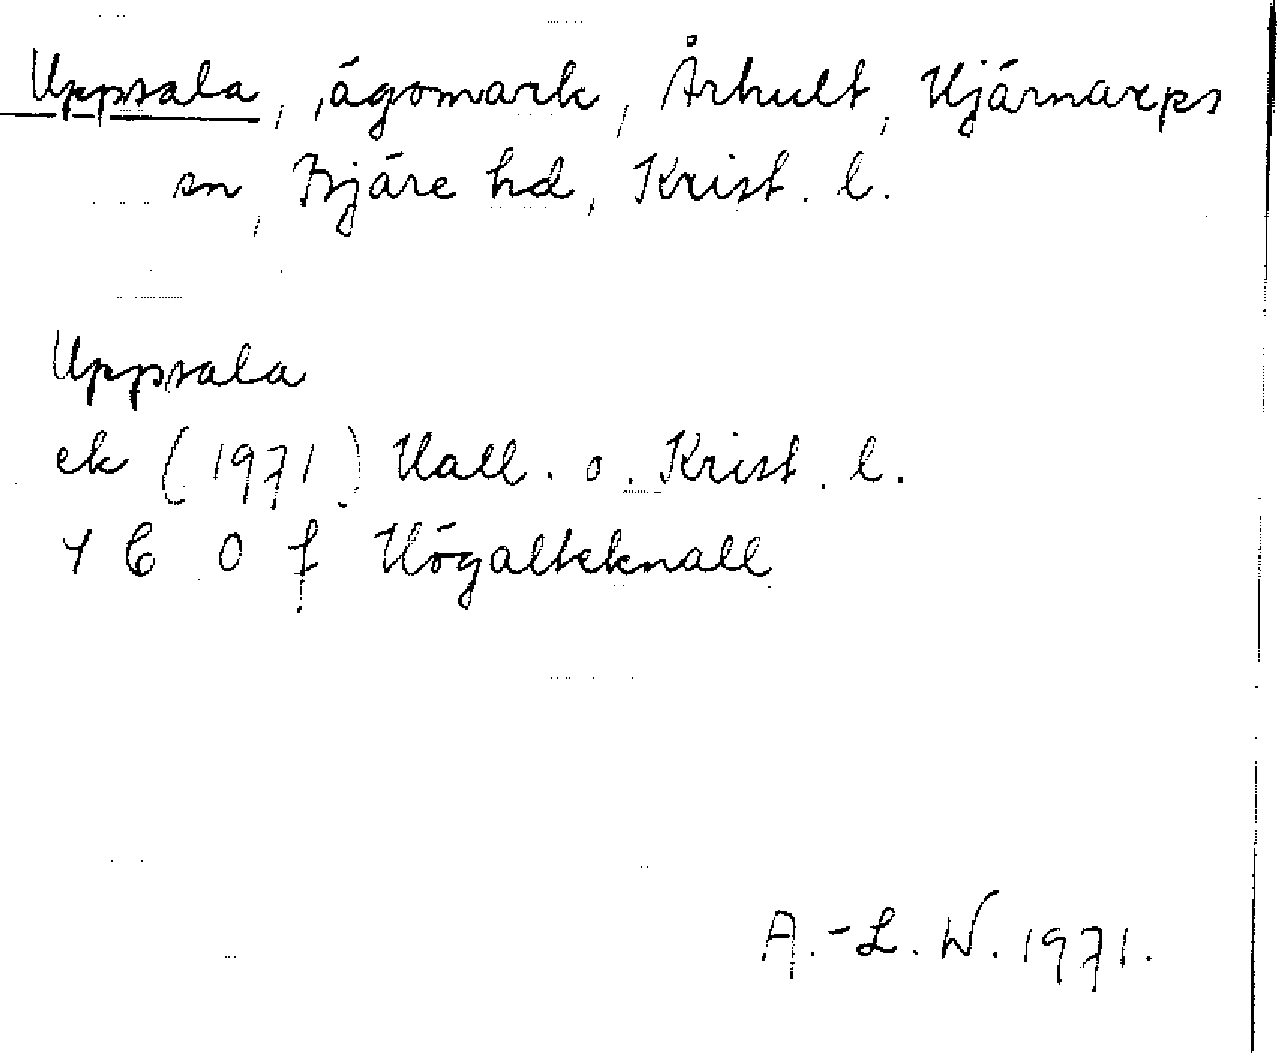 Uppsala, ägomark, Århult, Hjärnarps
sn, Bjäre hd, Krist. l.
Uppsala
ek (1971) Hall. o. Krist. l.
4 C 0 f Högalteknall
A.-L. W. 1971.